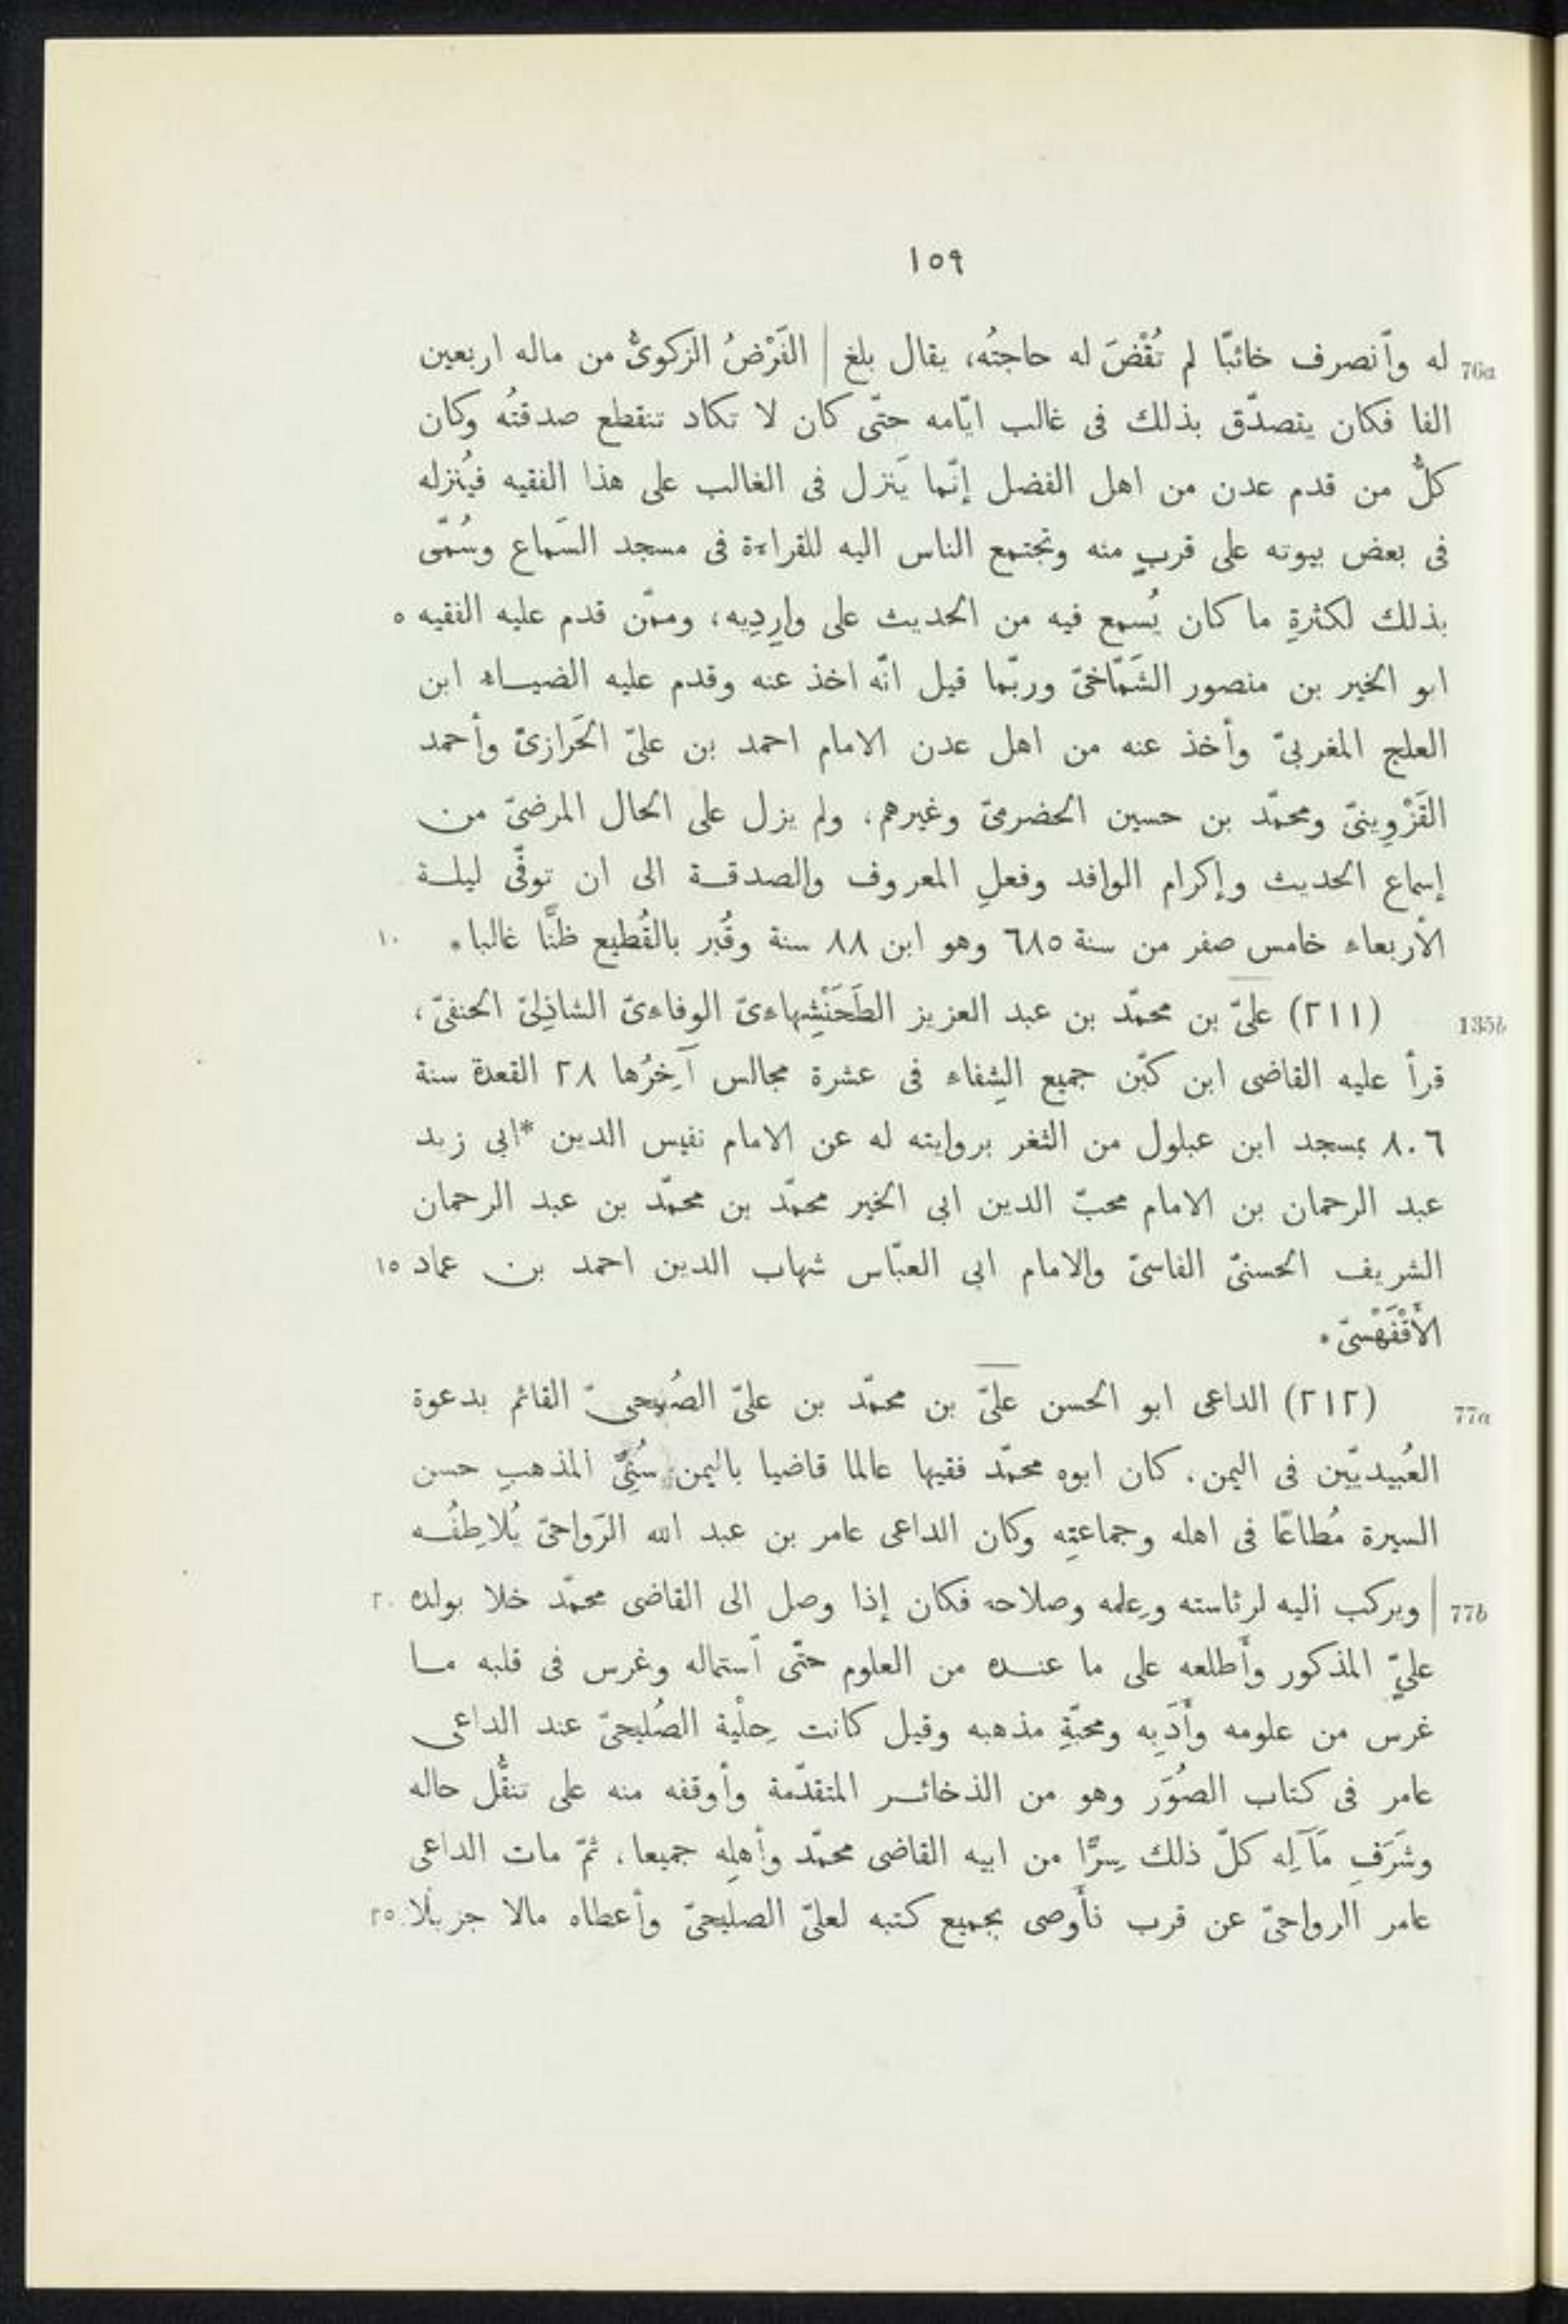 ١٥٩
76a له وٱنصرف خائبًا لم تُقْضَ له حاجتُه، يقال بلغ | الفَرْضُ الزكوىُّ من ماله اربعين
الفا فكان يتصدّق بذلك فى غالب ايّامه حتّى كان لا تكاد تنقطع صدقتُه وكان
كلُّ من قدم عدن من اهل الفضل إنّما يَنزل فى الغالب على هذا الفقيه فيُنزله
فى بعض بيوته على قربٍ منه وتجتمع الناس اليه للقراءة فى مسجد السَماع وسُمّى
بذلك لكثرةِ ما كان يُسمع فيه من الحديث على وارِدِيه، وممّن قدم عليه الفقيه ٥
ابو الخير بن منصور الشَمّاخىّ وربّما قيل انّه اخذ عنه وقدم عليه الضياء ابن
العلج المغربىّ وأخذ عنه من اهل عدن الامام احمد بن علىّ الحَرازىّ وأحمد
القَزْوِينىّ ومحمّد بن حسين الحضرمىّ وغيرهم، ولم يزل على الحال المرضىّ من
إسماع الحديث وإكرام الوافد وفعلِ المعروف والصدقة الى ان توفّى ليلة
الأربعاء خامس صفر من سنة ٦٨٥ وهو ابن ٨٨ سنة وقُبر بالقُطيع ظنًّا غالبا. ١٠
135b (٢١١) علىّ بن محمّد بن عبد العزيز الطَحَنْشِهاءىّ الوفاءىّ الشاذِلىّ الحنفىّ،
قرأ عليه القاضى ابن كبّن جميع الشِفاء فى عشرة مجالس آخِرُها ٢٨ القعدة سنة
٨٠٦ بمسجد ابن عبلول من الثغر بروايته له عن الامام نفيس الدين *ابى زيد
عبد الرحمان بن الامام محبّ الدين ابى الخير محمّد بن محمّد بن عبد الرحمان
الشريف الحسنىّ الفاسىّ والامام ابى العبّاس شهاب الدين احمد بن عماد ١٥
الأَقْفَهْسىّ.
77a (٢١٢) الداعى ابو الحسن علىّ بن محمّد بن علىّ الصُليحىّ القائم بدعوة
العُبيديّين فى اليمن، كان ابوه محمّد فقيها عالما قاضيا باليمن سُنِّىَّ المذهبِ حسن
السيرة مُطاعًا فى اهله وجماعتِه وكان الداعى عامر بن عبد الله الرَواحىّ يُلاطِفُه
77b | ويركب اليه لرئاسته وعِلمه وصلاحه فكان إذا وصل الى القاضى محمّد خلا بولده ٢٠
علىٍّ المذكور وأَطلعه على ما عنده من العلوم حتّى ٱستماله وغرس فى قلبه ما
غرس من علومه وأَدَبِه ومحبّةِ مذهبه وقيل كانت حِلْية الصُليحىّ عند الداعى
عامر فى كتاب الصُوَر وهو من الذخائر المتقدّمة وأوقفه منه على تنقُّل حاله
وشَرَفِ مَآلِه كلّ ذلك سِرًّا من ابيه القاضى محمّد وأهلِه جميعا، ثمّ مات الداعى
عامر الرواحىّ عن قرب فأَوصى بجميع كتبه لعلىّ الصليحىّ وأعطاه مالا جزيلا ٢٥